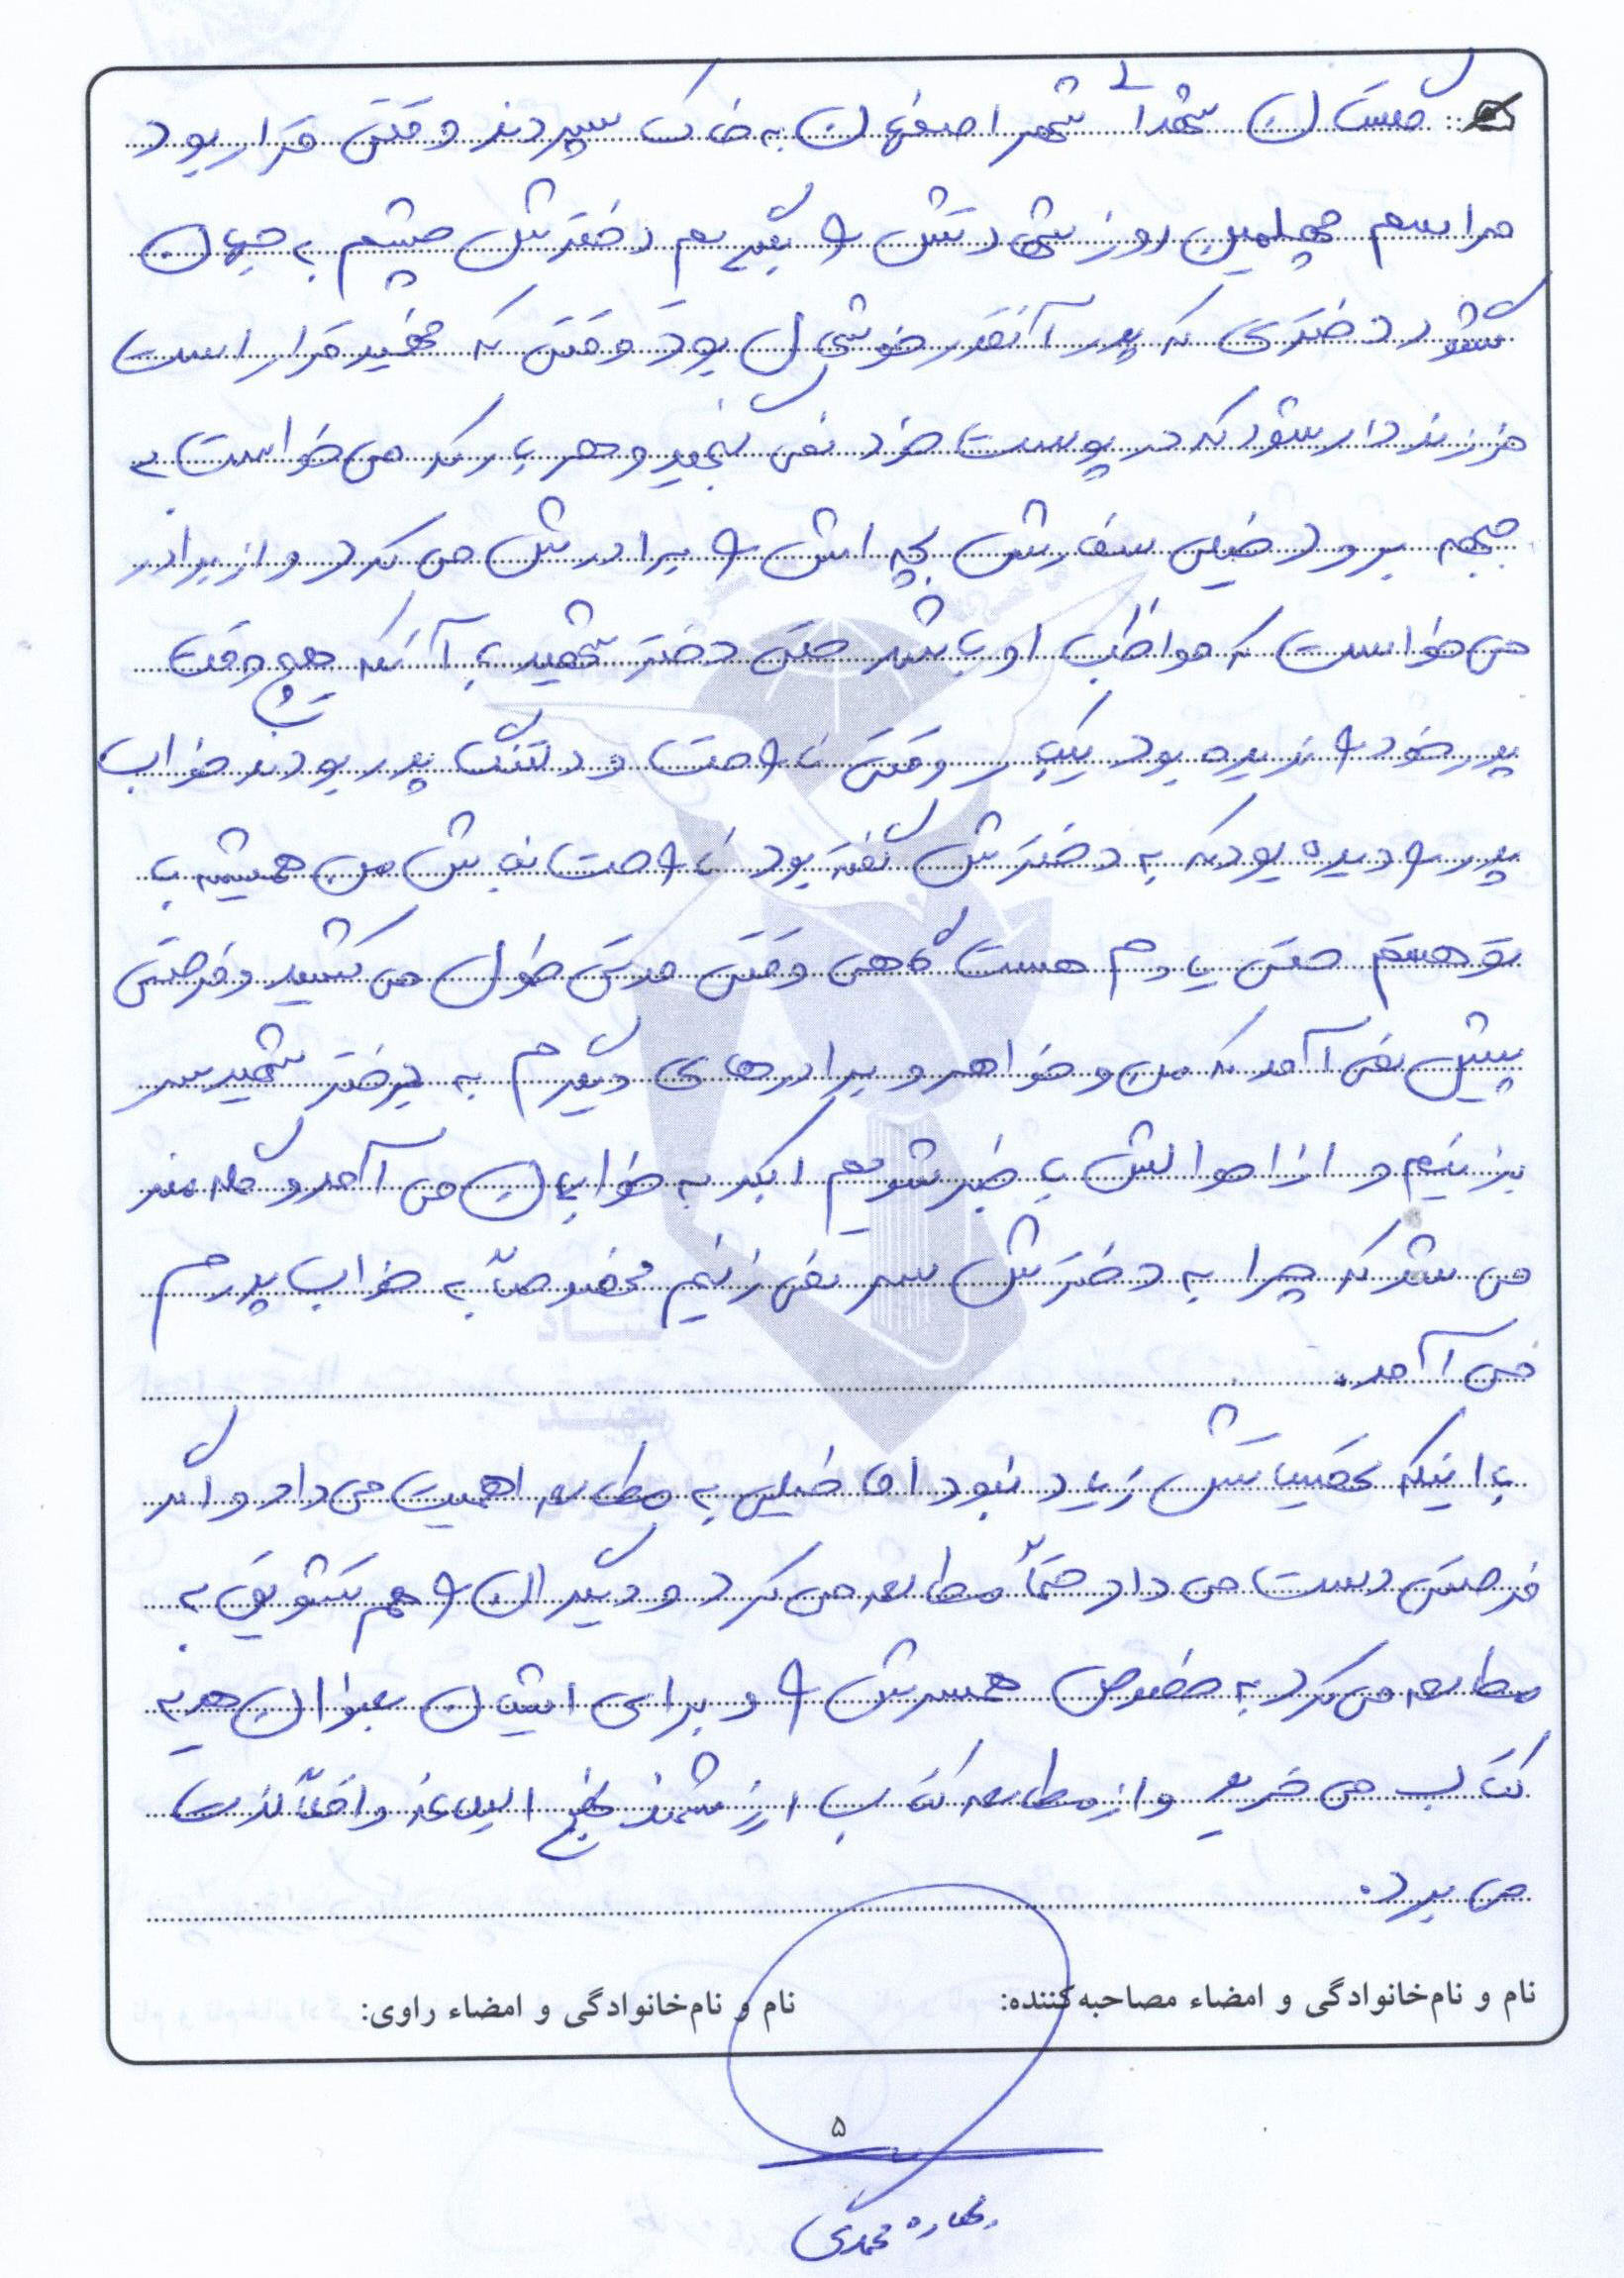 گلستان شهدای شهر اصفهان به خاک سپردند وقتی قرار بود
مراسم چهلمین روز شهادتش را بگیریم دخترش چشم به جهان
گشود دختری که پدر آنقدر خوشحال بود وقتی که فهمید قرار است
فرزند دار شود که در پوست خود نمی گنجید و هر بار که می خواست به
جبهه برود خیلی سفارش بچه اش را به برادرش می کرد و از برادر
می خواست که مواظب او باشد حتی دختر شهید با آنکه هیچ وقت
پدر خود را ندیده بود یکبار وقتی ناراحت و دلتنگ پدر بودند خواب
پدر را دیده بود که به دخترش گفته بود ناراحت نباش من همیشه با
تو هستم حتی یادم هست گاهی وقتی مدتی طول می کشید و فرصتی
پیش نمی آمد که من و خواهر و برادرهای دیگرم به دختر شهید سر
بزنیم و از احوالش با خبر شویم اکبر به خوابمان می آمد و گله مند
می شد که چرا به دخترش سر نمی زنیم مخصوصاً به خواب پدرم
می آمد.
با اینکه تحصیلاتش زیاد نبود اما خیلی به مطالعه اهمیت می داد و اگر
فرصتی دست می داد حتماً مطالعه می کرد و دیگران را هم تشویق به
مطالعه می کرد به خصوص همسرش را و برای ایشان بعنوان هدیه
کتاب می خرید و از مطالعه کتاب ارزشمند نهج البلاغه واقعاً لذت
می برد.
نام و نام‌خانوادگی و امضاء مصاحبه‌کننده: نام و نام‌خانوادگی و امضاء راوی:
۵
بهاره محمدی